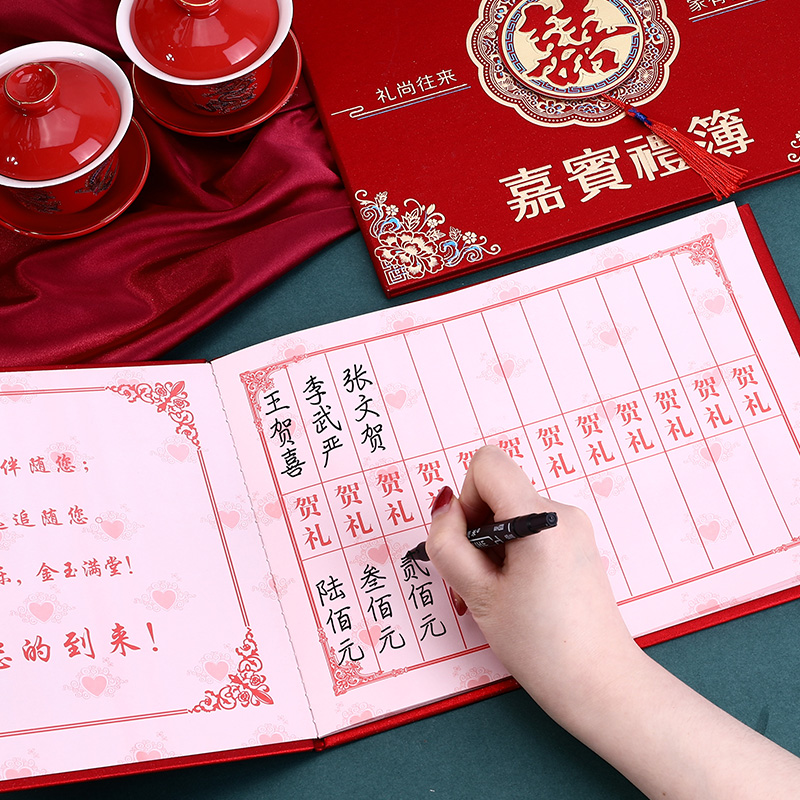 礼尚往来
囍
嘉賓禮簿
伴随您；
追随您。
乐，金玉满堂！
的到来！
王贺喜
李武严
张文贺
贺礼
贺礼
贺礼
贺礼
贺
贺礼
贺礼
贺礼
贺礼
贺礼
贺礼
贺礼
陆佰元
叁佰元
贰佰元